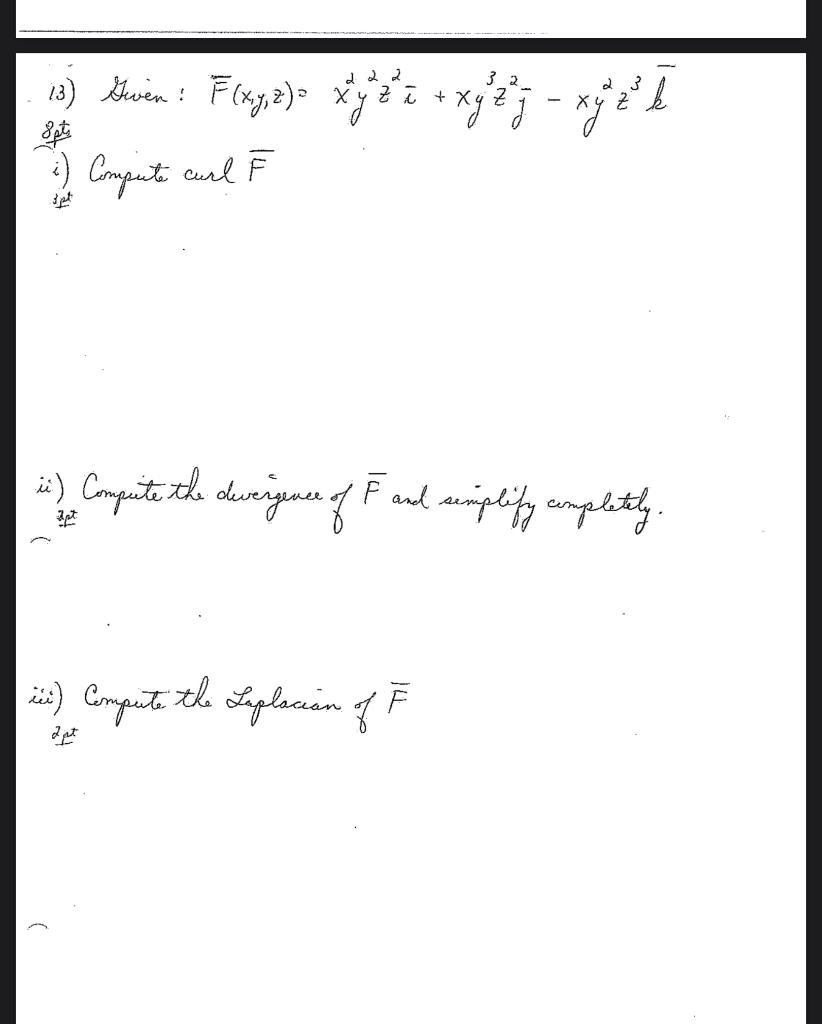 13) Given : F̅(x,y,z)= x²y²z² i̅ + xy³z² j̅ - xy²z³ k̅
8pts
i) Compute curl F̅
3pt
ii) Compute the divergence of F̅ and simplify completely.
3pt
iii) Compute the Laplacian of F̅
2pt